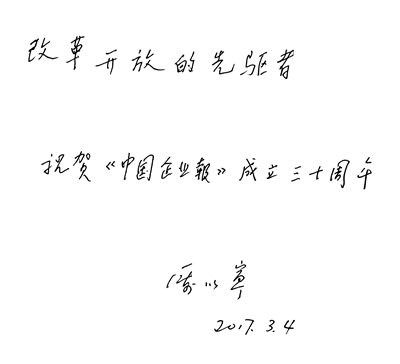 改革开放的先驱者
祝贺《中国企业報》成立三十周年
2017.3.4